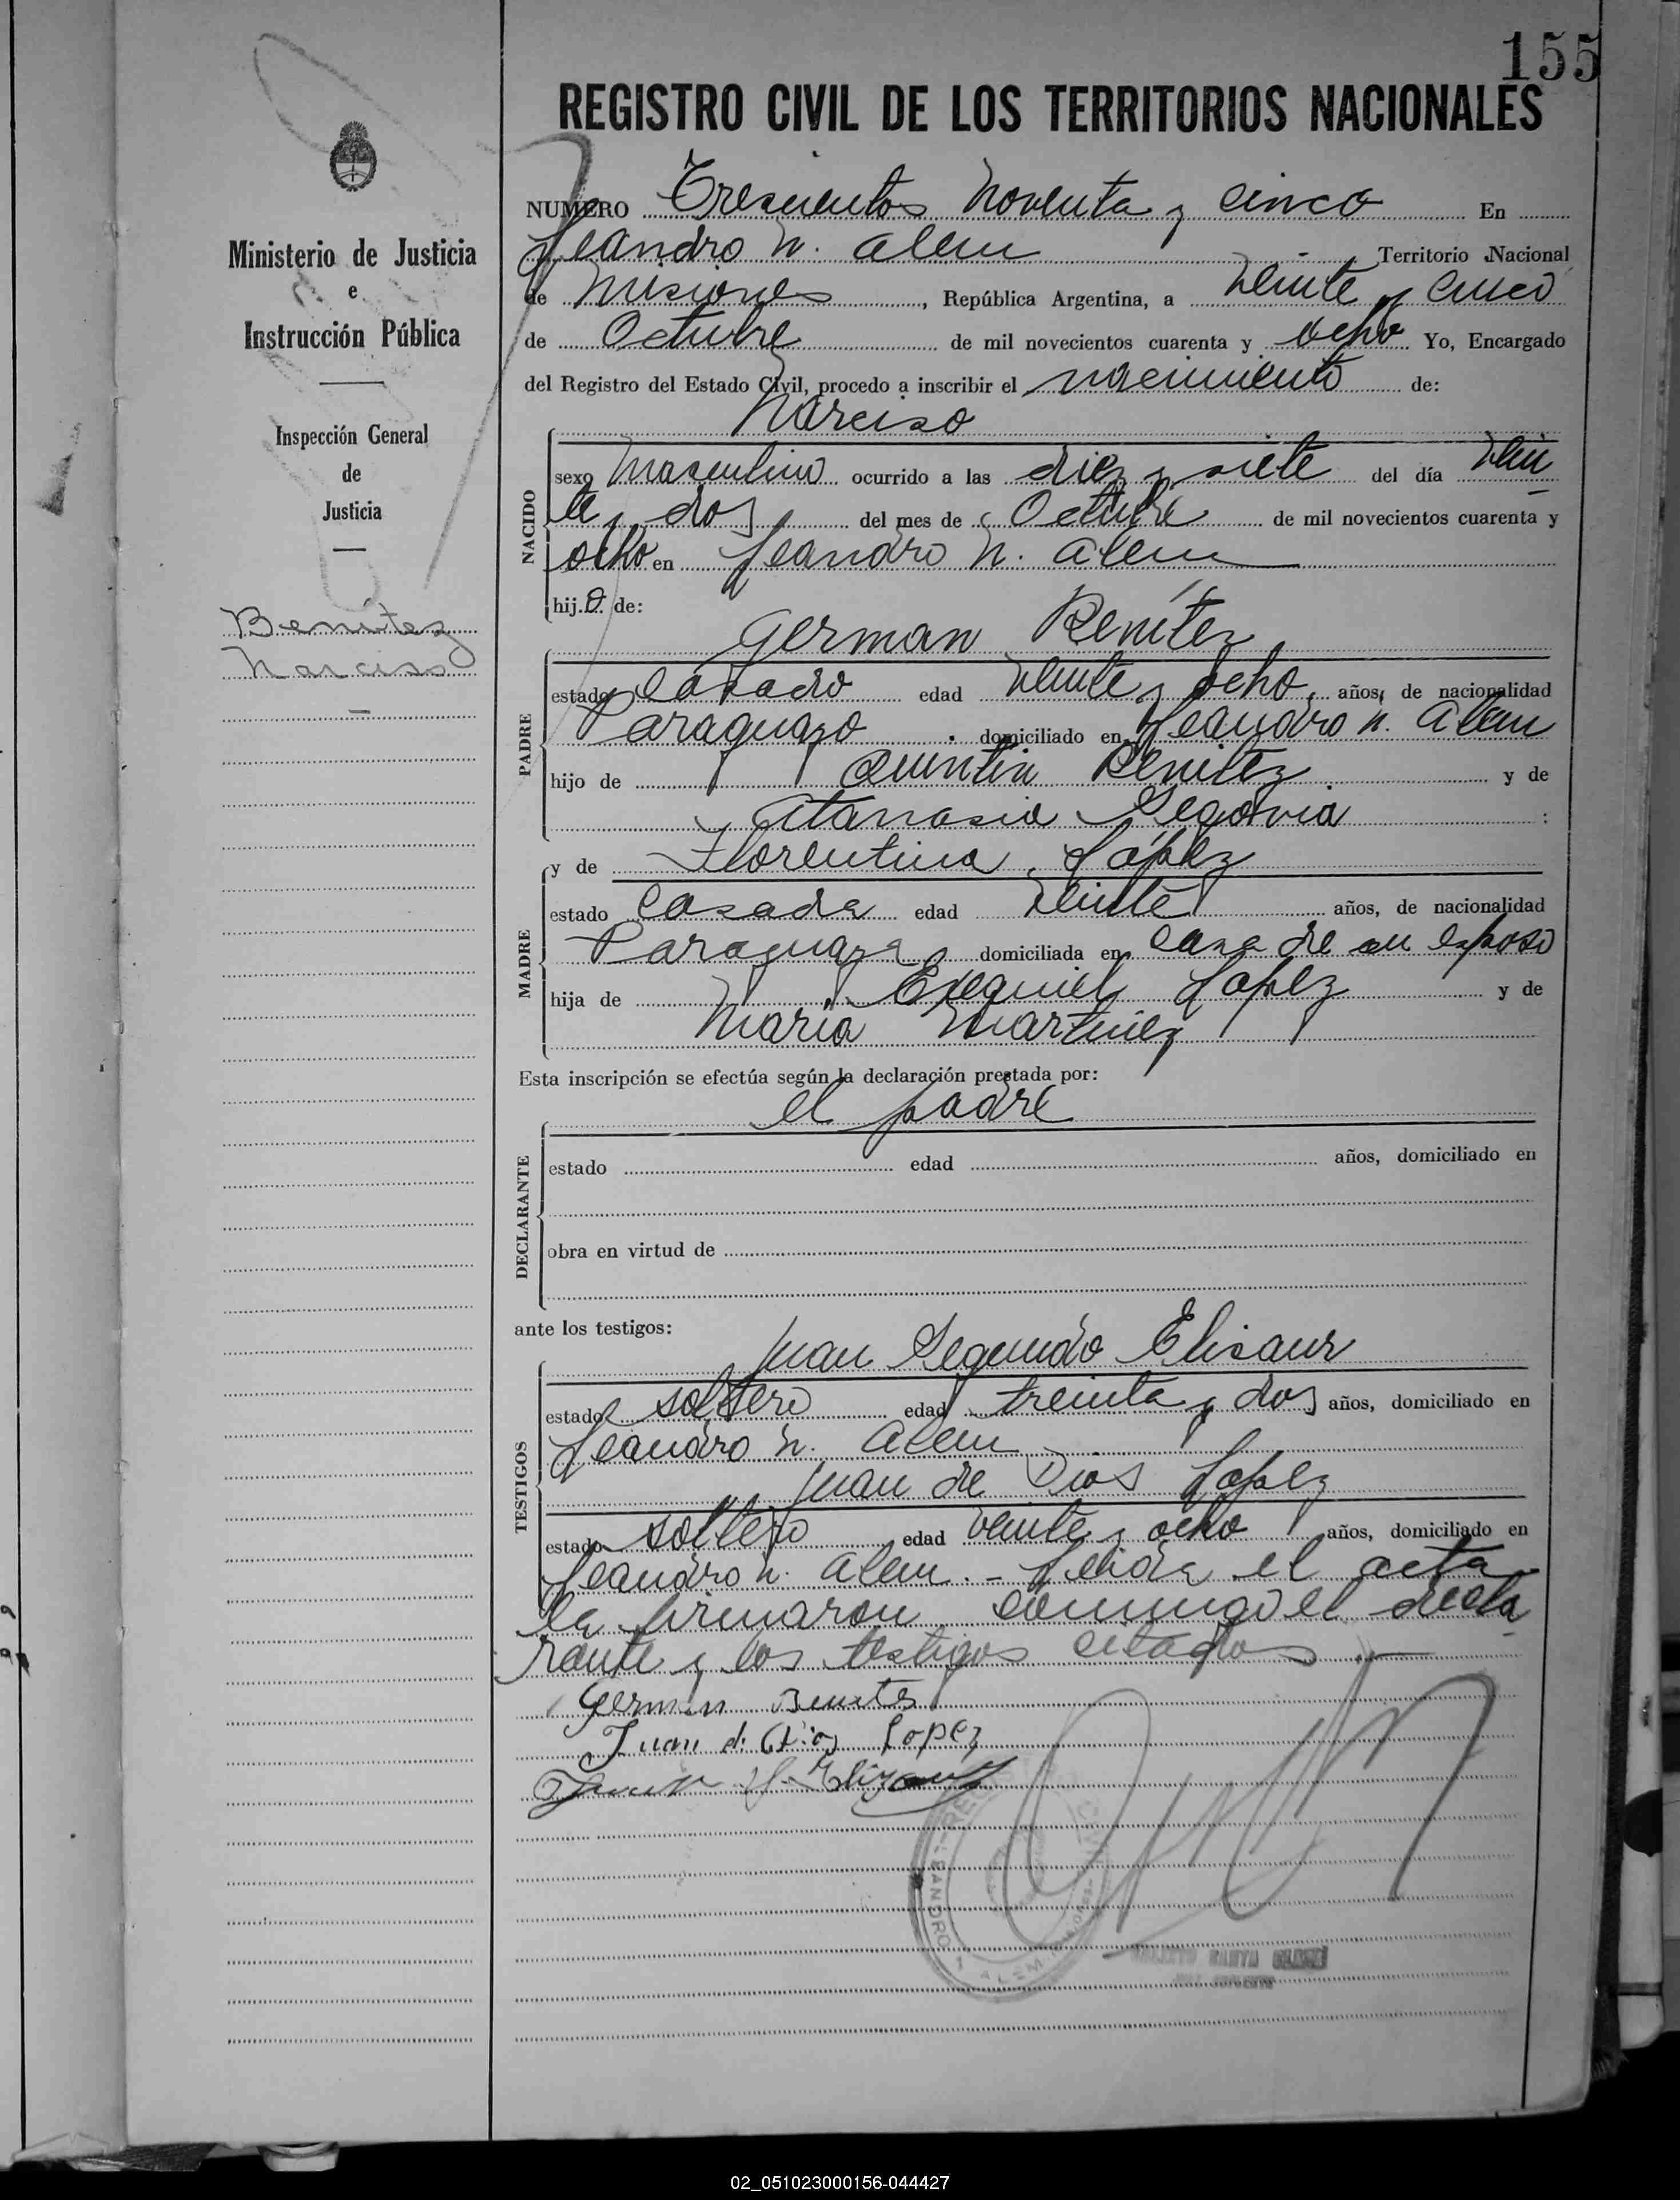 155
REGISTRO CIVIL DE LOS TERRITORIOS NACIONALES
Ministerio de Justicia
e
Instrucción Pública
Inspección General
de
Justicia
Benítez
Narciso
NUMERO Trescientos noventa y cinco En
Leandro N. Alem Territorio Nacional
de Misiones, República Argentina, a veinte y cinco
de Octubre de mil novecientos cuarenta y ocho Yo, Encargado
del Registro del Estado Civil, procedo a inscribir el nacimiento de:
Narciso
NACIDO
sexo Masculino ocurrido a las diez y siete del día vein
te y dos del mes de Octubre de mil novecientos cuarenta y
ocho en Leandro N. Alem
hijo de:
German Benítez
PADRE
estado casado edad veinte y ocho años, de nacionalidad
Paraguayo domiciliado en Leandro N. Alem
hijo de Quintin Benitez y de
Atanasia Segovia :
MADRE
y de Florentina López
estado casada edad veinte años, de nacionalidad
Paraguaya domiciliada en casa de su esposo
hija de Exequiel Lopez y de
María Martinez
Esta inscripción se efectúa según la declaración prestada por:
el padre
DECLARANTE
estado edad años, domiciliado en
obra en virtud de
ante los testigos:
TESTIGOS
Juan Segundo Elisaur
estado soltero edad treinta y dos años, domiciliado en
Leandro N. Alem
Juan de Dios Lopez
estado soltero edad veinte y ocho años, domiciliado en
Leandro N. Alem. - Leida el acta
la firmaron conmigo el decla
rante y los testigos citados.
German Benites
Juan de Dios Lopez
LEANDRO N. ALEM
02_051023000156-044427